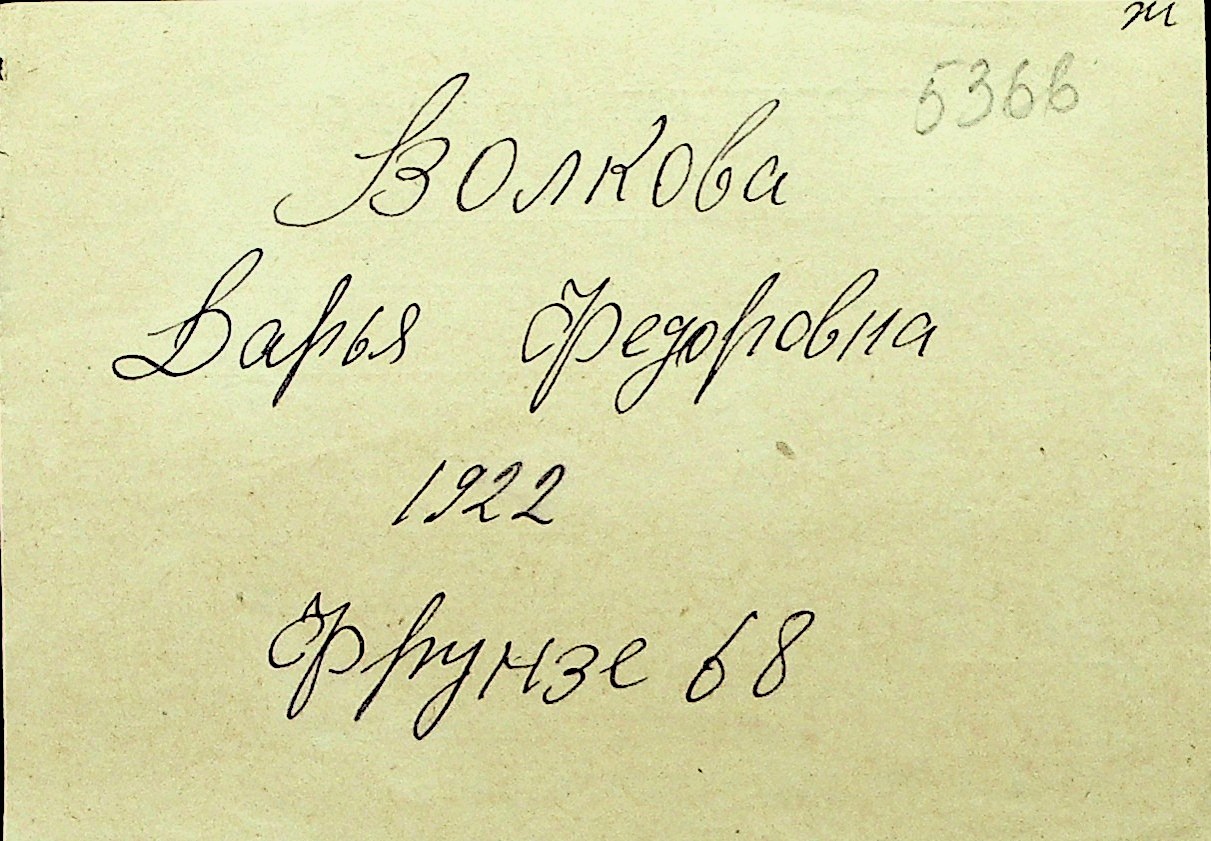 ж
5366
Волкова
Дарья Федоровна
1922
Фрунзе 68